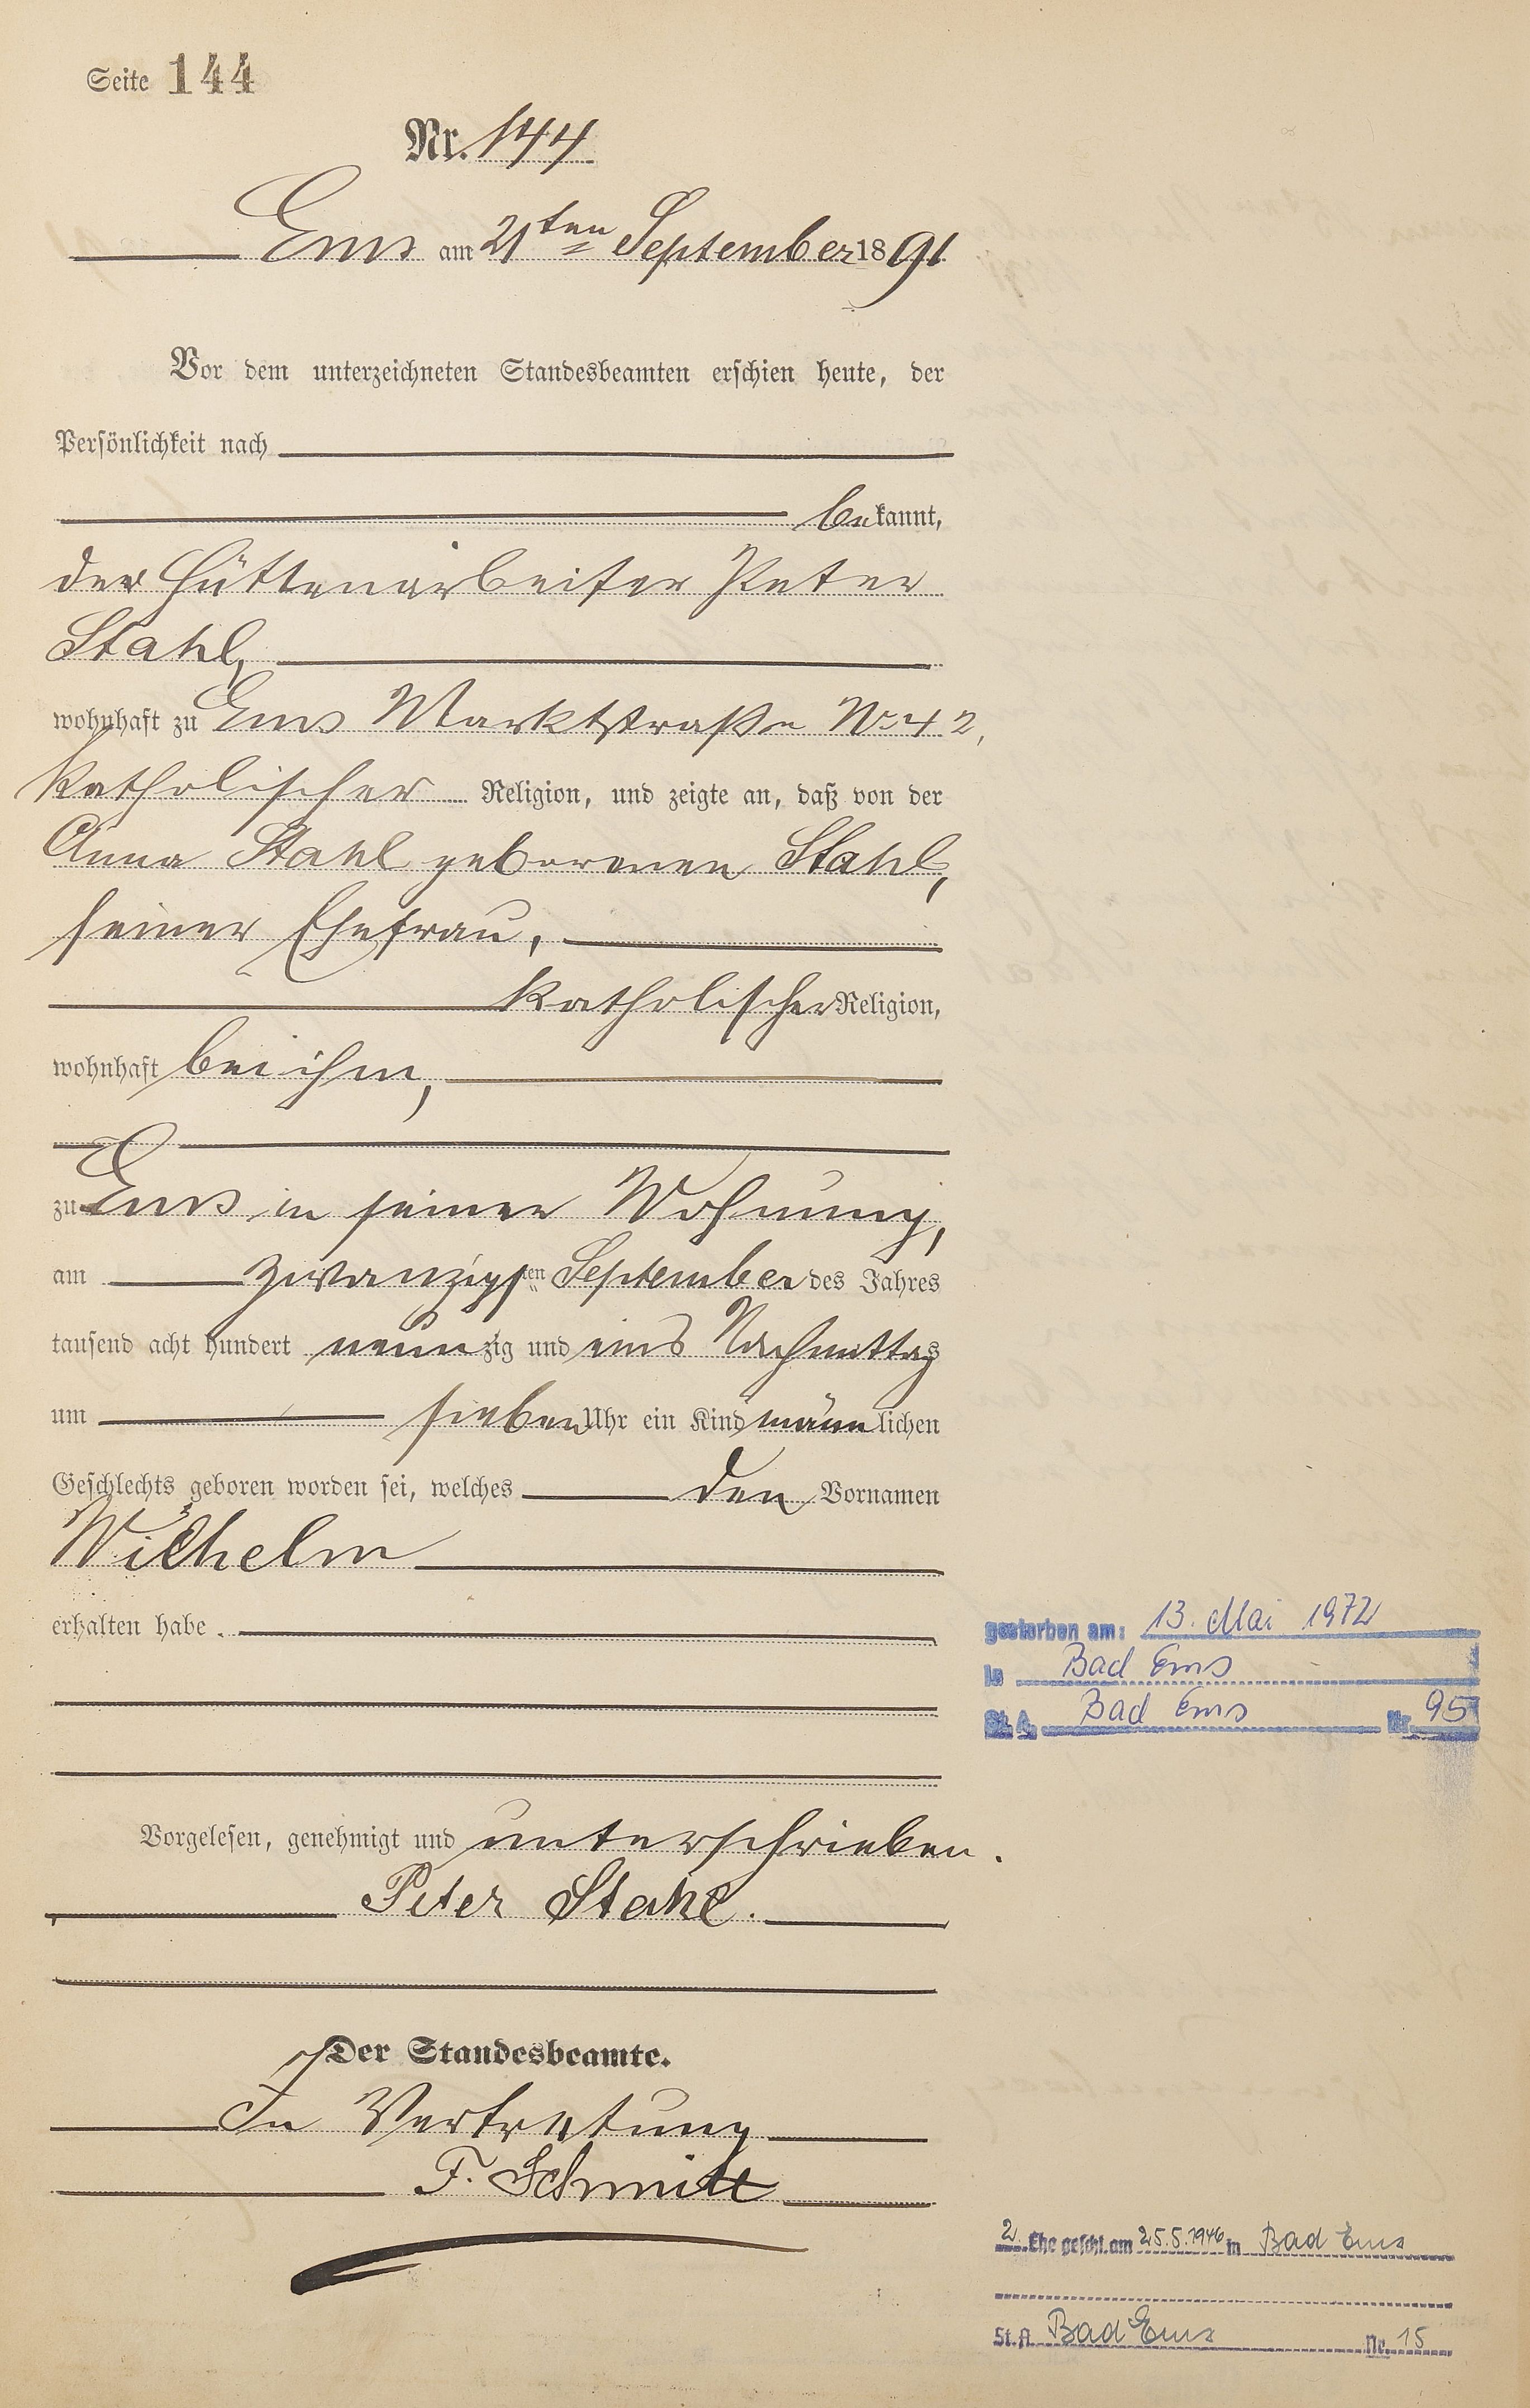 Seite 144
Nr. 144
Ems am 21ten September 1891
Vor dem unterzeichneten Standesbeamten erschien heute, der
Persönlichkeit nach
bekannt,
der Hüttenarbeiter Peter
Stahl,
wohnhaft zu Ems Marktstraße No 42,
katholischer Religion, und zeigte an, daß von der
Anna Stahl geborenen Stahl,
seiner Ehefrau,
katholischer Religion,
wohnhaft bei ihm,
zu Ems in seiner Wohnung,
am zwanzigsten September des Jahres
tausend acht hundert neunzig und eins Nachmittags
um sieben Uhr ein Kind männlichen
Geschlechts geboren worden sei, welches den Vornamen
Wilhelm
erhalten habe.
gestorben am: 13. Mai 1972
in Bad Ems
St. A. Bad Ems Nr. 95
Vorgelesen, genehmigt und unterschrieben.
Peter Stahl.
Der Standesbeamte.
In Vertretung
F. Schmitt
2. Ehe geschl. am 25.5.1946 in Bad Ems
St. A. Bad Ems Nr. 15